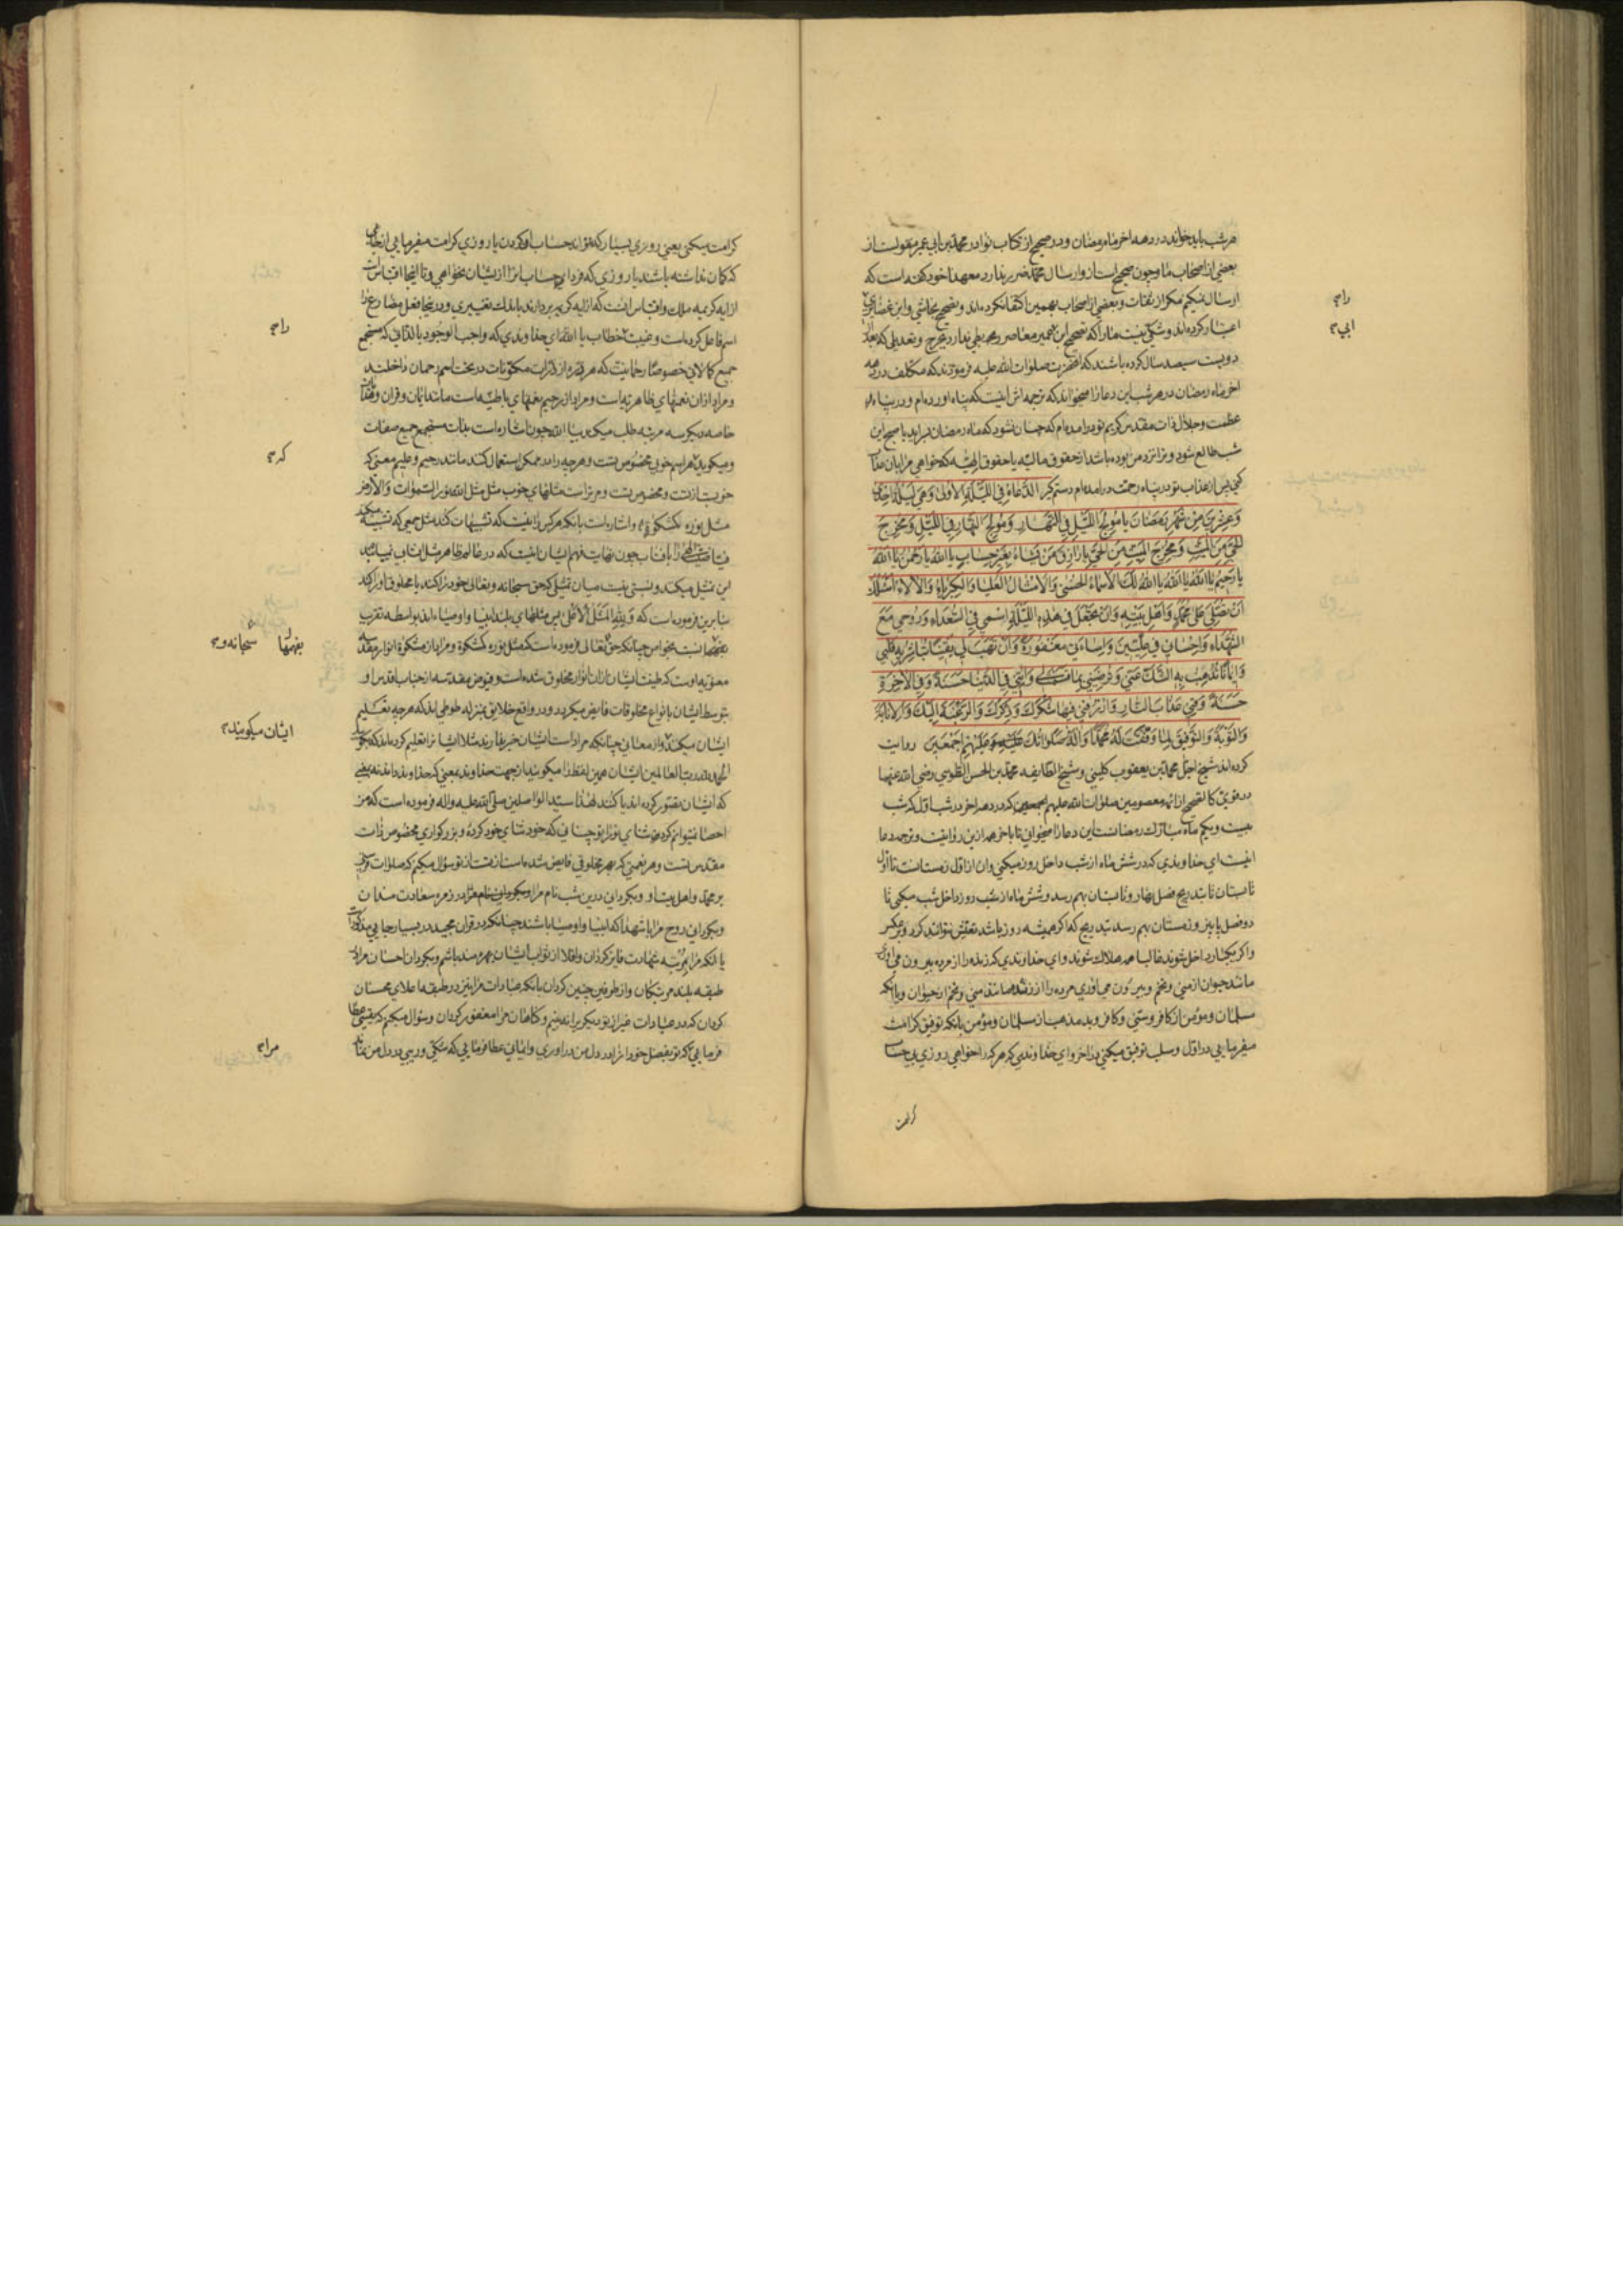 هر شب باید خواند در دهه اخر ماه رمضان و در صحیح از کتاب نوادر محمد بن ابی عمیر منقولست از
بعضی از اصحاب ما و چون صحیح است از و ارسال محمد ضرر ندارد و معهذا خود گفته است که
ارسال نمیکنم مگر از ثقات و بعضی از اصحاب بهمین اکتفا نکرده اند و تصحیح نجاشی و ابن غضایری
اعتبار کرده اند و شکی نیست ما را که تصحیح ابن عمیر معاصر ربطی ندارد بجرح و تعدیلی که بعد از
دویست سیصد سال کرده باشند که انحضرت صلوات الله علیه فرمودند که مکلف در دهه
اخر ماه رمضان در هر شب این دعا را میخواند که ترجمه اش اینست که پناه اورده ام و در پناه
عظمت و جلال ذات مقدس کریم تو درامده ام که چنان نشود که ماه رمضان براید یا صبح این
شب طالع شود و ترا نزد من بوده باشد از حقوق مالیه یا حقوق الهیه که خواهی مرا بان عذاب
کنی پس از عذاب تو در پناه رحمت درامده ام دستم گیر الدعاء في الليلة الأولى وهي ليلة إحدى
وعشرين من شهر رمضان يا مولج الليل في النهار ومولج النهار في الليل ومخرج
الحي من الميت ومخرج الميت من الحي يا رازق من تشاء بغير حساب يا الله يا رحمن يا الله
يا رحيم يا الله يا الله يا الله لك الأسماء الحسنى والأمثال العليا والكبرياء والآلاء أسئلك
أن تصلي على محمد وأهل بيته وأن تجعل في هذه الليلة اسمي في السعداء وروحي مع
الشهداء وإحساني في عليين وإساءتي مغفورة وأن تهب لي يقينا تباشر به قلبي
وإيمانا تذهب به الشك عني وترضيني بما قسمت لي وآتني في الدنيا حسنة وفي الآخرة
حسنة وقني عذاب النار وارزقني فيها شكرك وذكرك والرغبة إليك والإنابة
والتوبة والتوفيق لما وفقت له محمدا وآله صلواتك عليه وعليهم أجمعين روایت
کرده اند شیخ اجل محمد بن یعقوب کلینی و شیخ الطایفه محمد بن الحسن الطوسی رضی الله عنهما
در موثق کالصحیح از ائمه معصومین صلوات الله علیهم اجمعین که در دهه اخر در شب اول که شب
بیست و یکم ماه مبارک رمضانست این دعا را میخوانی تا باخر دهه ازین روایت و ترجمه دعا
اینست ای خداوندی که در شش ماه از شب داخل روز میکنی و ان از اول زمستانست تا اول
تابستان تا بتدریج فصل بهار و تابستان بهم رسد و شش ماه از شب روز داخل شب میکنی تا
دو فصل پاییز و زمستان بهم رسد بتدریج که اگر همیشه روز باشد تعیش نتوانند کرد و بر عکس
و اگر یکبار داخل شوند غالبا همه هلاک شوند و ای خداوندی که زنده را از مرده بیرون می اوری
مانند حیوان از منی و تخم و بیرون می اوری مرده را از زنده مانند منی و تخم از حیوان و یا انکه
مسلمان و مؤمن از کافر و سنی و کافر و بد مذهب از مسلمان و مؤمن بانکه توفیق کرامت
میفرمایی در اول و سلب توفیق میکنی در اخر و ای خداوندی که هر که را خواهی روزی بی حساب
کرامت
را م
ابی م
کرامت میکنی یعنی روزی بسیار که نتواند حساب او کردن یا روزی کرامت میفرمایی از جایی
که گمان نداشته باشند یا روزی که فردای حساب انرا از ایشان نخواهی و تا اینجا اقتباس است
از ایه کریمه ملک و اقتباس انست که از ایه کریمه بردارند باندک تغییری و در اینجا فعل مضارع را
اسم فاعل کرده است و خطاب یا الله ای خداوندی که واجب الوجود بالذاتی که مستجمع
جمیع کمالاتی خصوصا رحمانیت که هر ذره از ذرات مکونات در تحت اسم رحمان داخلند
و مراد ازان نعمتهای ظاهریه است و مراد از رحیم نعمتهای باطنیه است مانند ایمان و قران و
خاصه دیگر سه مرتبه طلب میکند بیا الله چون اشاره است بذات مستجمع جمیع صفات
و میگوید هر اسم خوبی مخصوص تست و هر چه را در ممکن استعمال کنند مانند رحیم و علیم معنی که
خوبست از تست و مخصوص تست و تراست مثلهای خوب مثل مثل الله نور السموات والأرض
مثل نوره كمشكوة و اشاره است بانکه هر کس را نیست که تشبیهات کند مثل جمعی که تشبیه میکنند
این تمثیل میکند و نسبتی نیست میان تمثیلی که حق سبحانه و تعالی خود ترا کند یا مخلوق او را کند
بنابرین فرموده است که ولله المثل الأعلى پس مثلهای بلند انبیا و اوصیاء اند بواسطه تقریب
بفهمها نسبت بخواص چنانکه حق تعالی فرموده است که مثل نوره کمشکوة و مراد از مشکوة انوار مقدسه
معنویه اوست که طینت ایشان ازان انوار مخلوق شده است و فیوض مقدسه از جناب اقدس او
بتوسط ایشان بانواع مخلوقات فایض میگردد و در واقع خلایق بمنزله طوطی اند که هر چه تعلیم
ایشان میکنند و از معنا نی چنانکه مراد است ایشان خبر ندارند مثلا ایشان را تعلیم کرده اند که بگو
الحمد لله رب العالمین ایشان همین لفظ را میگویند از جهت خداوند بمعنی که خداوند داند نه بمعنی
که ایشان تصور کرده اند یا کنند لهذا سید الواصلین صلی الله علیه واله فرموده است که من
احصا نمیتوانم کرد ثنای ترا تو چنانی که خود ثنای خود کرده و بزرگواری مخصوص ذات
مقدس تست و هر نعمتی که بهر مخلوقی فایض شده است از تست از تو سؤال میکنم که صلوات فرستی
بر محمد و اهل بیت او و بگردانی درین شب نام مرا در زمره سعادت مندان
و بگردانی روح مرا با شهدا که انبیا و اوصیا باشند چنانکه در قران مجید در بسیار جایی مذکور است
یا انکه مرا بمرتبه شهادت فایز گردان و اقلا از ثواب ایشان بهره مند باشم و بگردان احسان مرا در
طبقه بلند مرتبگان و از طرفین چنین گردان بانکه عبادات مرا نیز در طبقه اعلای محسنان
گردان که در عبادات غیر از تو دیگری را نه بینیم و گناهان مرا مغفور گردان و سؤال میکنم که یقینی عطا
فرمایی که تو بفضل خود انرا در دل من در اوری و ایمانی عطا فرمایی که شکی و ریبی در دل من نماند
را م
که م
بفهمها
سبحانه و م
ایشان میگویند م
مرا م